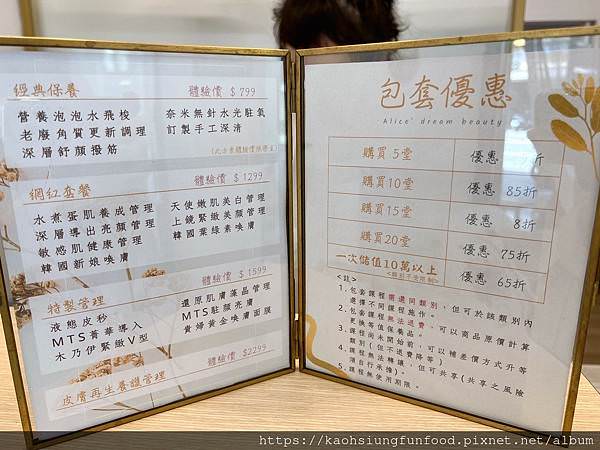 經典保養 體驗價 $ 799
營養泡泡水飛梭 奈米無針水光駐氧
老廢角質更新調理 訂製手工深清
深層舒顏撥筋
網紅套餐 體驗價 $ 1299
水煮蛋肌養成管理 天使嫩肌美白管理
深層導出亮顏管理 上鏡緊緻美顏管理
敏感肌健康管理 韓國葉綠素喚膚
韓國新娘喚膚
特製管理 體驗價 $ 1599
液態皮秒 還原肌膚藻晶管理
MTS菁華導入 MTS駐顏亮膚
木乃伊緊緻V型 貴婦黃金喚膚面膜
皮膚再生養護管理 體驗價 $2299
包套優惠
Alice' dream beauty
購買 5堂 優惠 折
購買10堂 優惠 85折
購買15堂 優惠 8折
購買20堂 優惠 75折
一次儲值10萬以上 優惠 65折
<註>
1.包套課程需選同類別，但可於該類別內
選擇不同課程施作。
2.包套課程無法退費，可以商品原價計算
更換等值保養品。
3.課程尚未開始前，可以補差價方式升等
類別(但不退費降等)
4.課程無法轉讓，但可共享(共享之風險
須自行承擔)。
5.課程無使用期限。
https://kaohsiungfunfood.pixnet.net/album